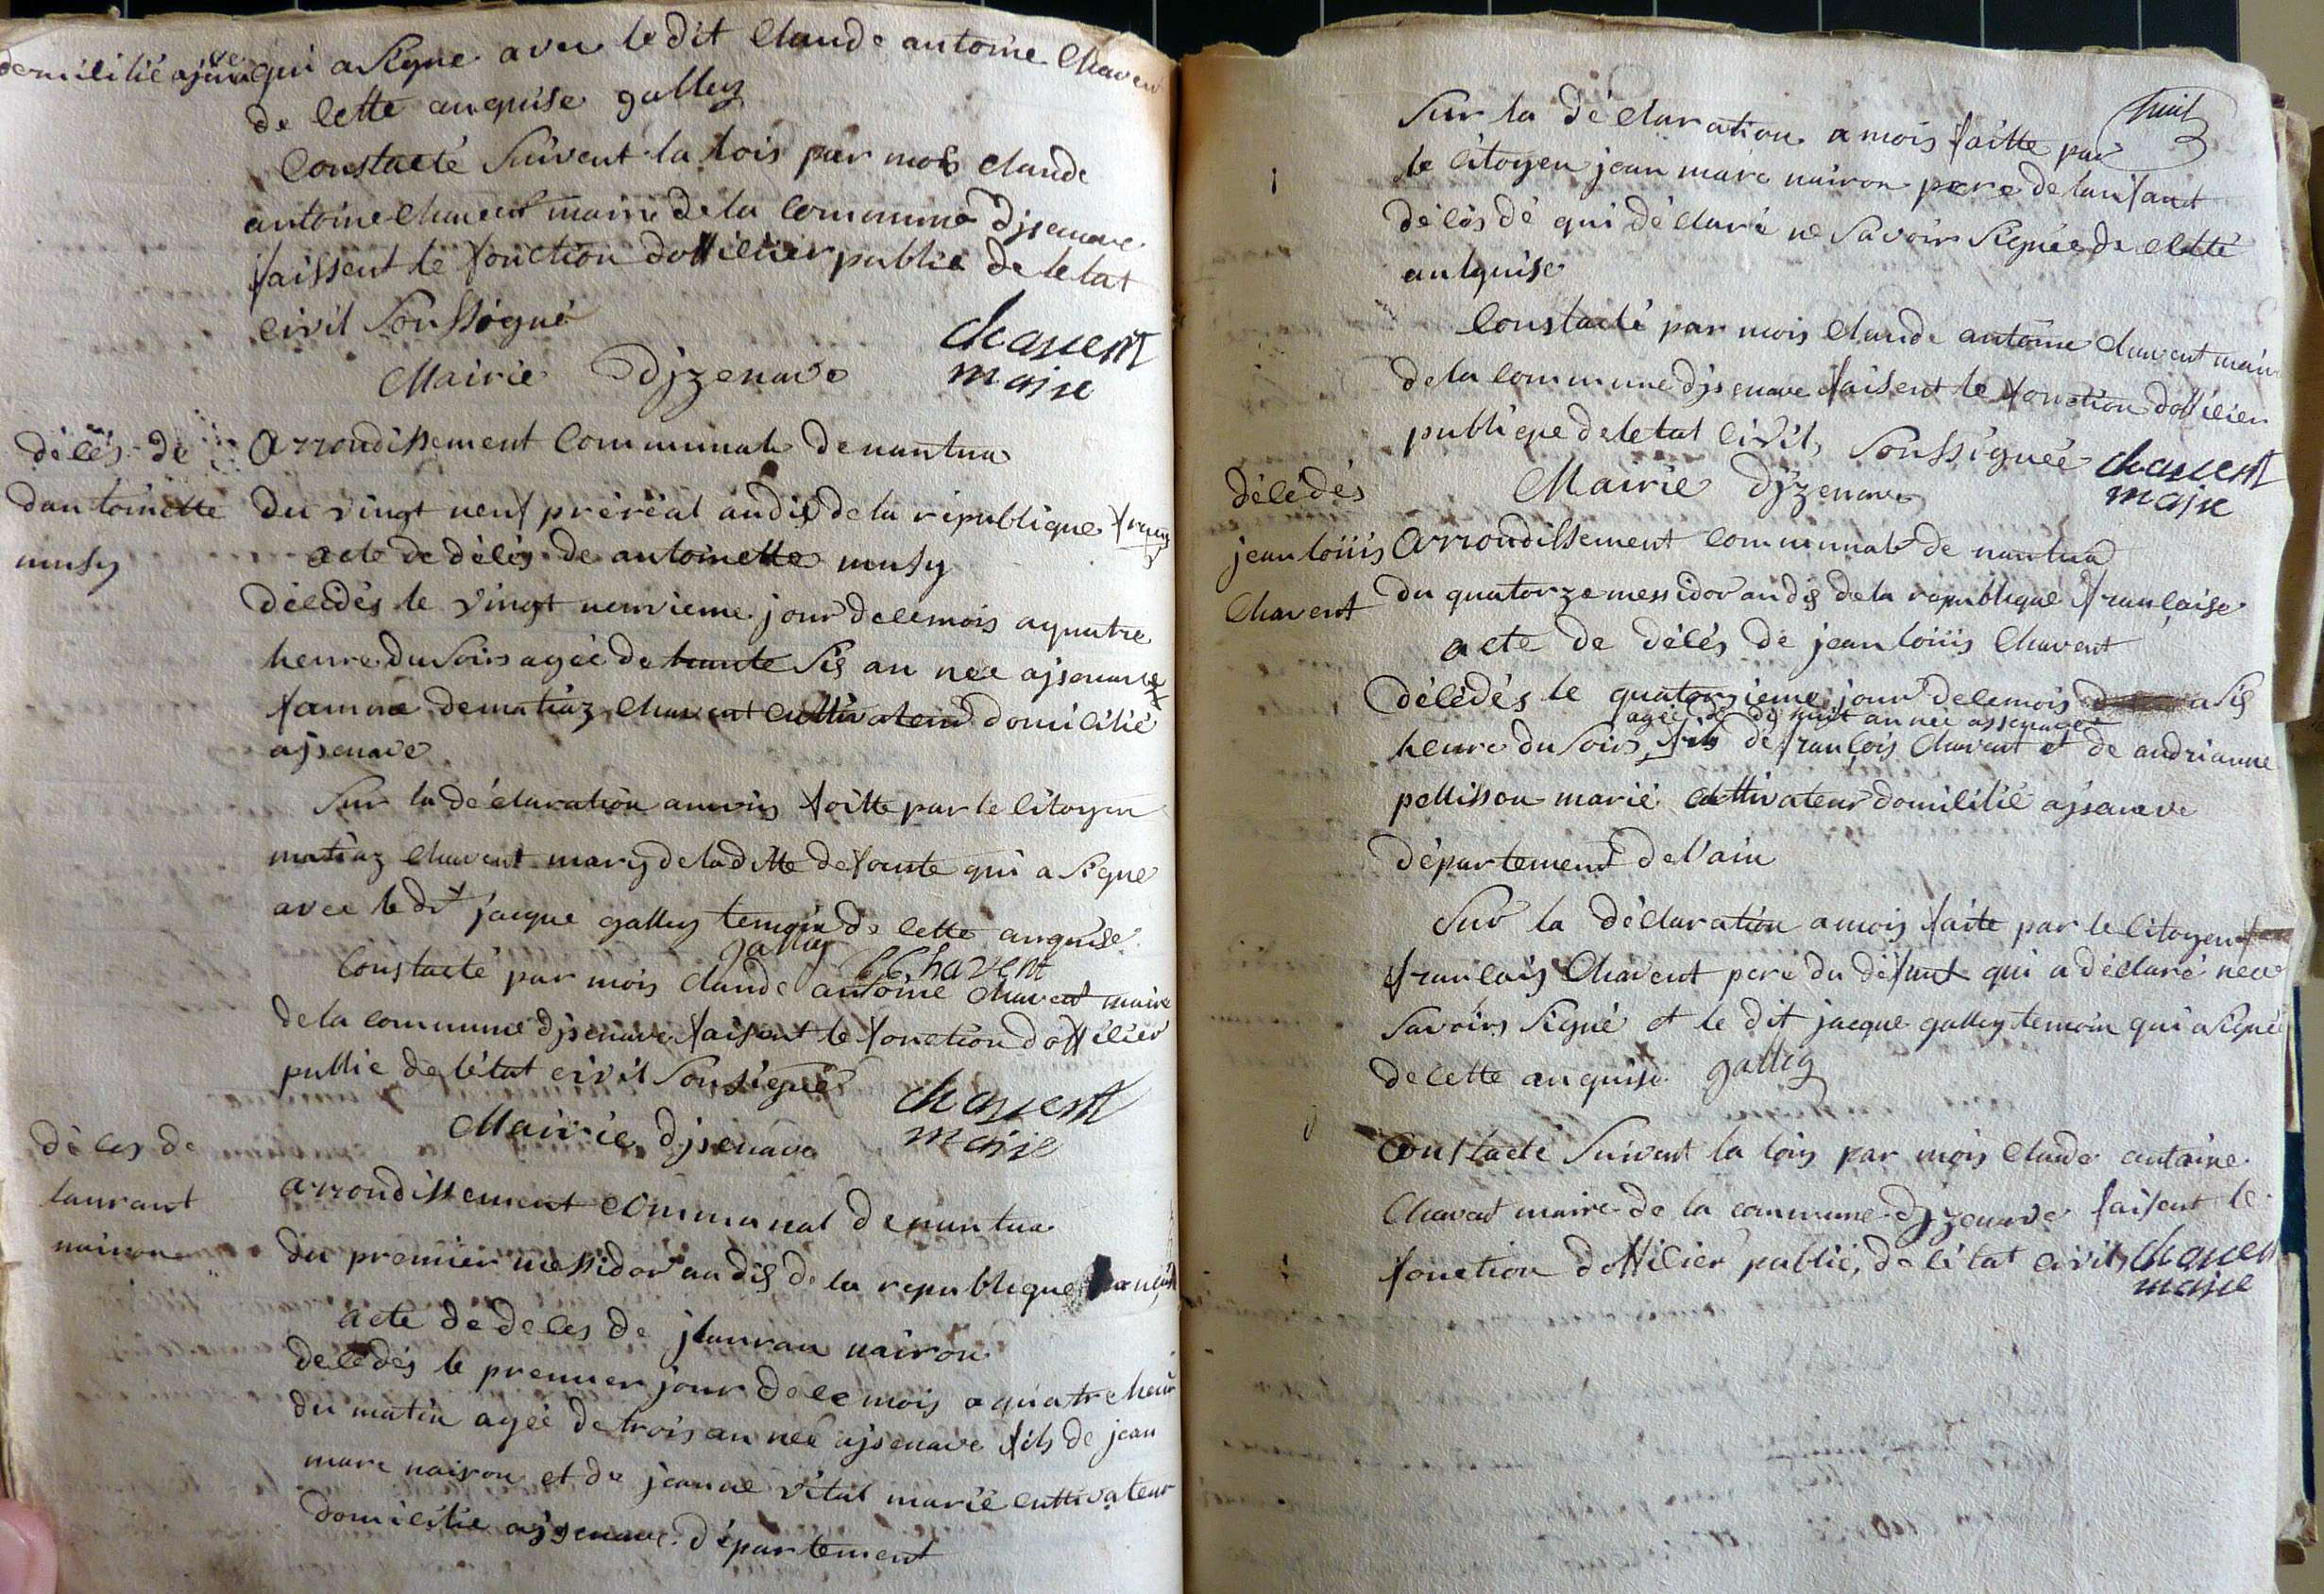 domicilié ajenave qui a signe avec le dit Claude antoine Chavent
de cette anquise galley
Constacté suivent la lois par mois claude
antoine chavent maire de la commune djsenave
faissent le fonction dofficier public de letat
civil soussogné
chavent
maire
Mairie djzenave
décés de
dantoinette
musy
arrondissement communale de nantua
du vingt neuf préréal an dis de la république franc
acte de délés de antoinette musy
décédés le vingt neuvieme jour de cemois a quatre
heure du soirs agée de trante sis an nee ajsenave
famme de matiaz chavent cultivateur domicilié
ajsenave
Sur la déclaration a mois faitte par le citoyen
matiaz chavent mary de la ditte defounte qui a signe
avec le dit jacque galley temoin de cette anquise
galley CChavent
Constacté par mois claude antoine chavent maire
de la commune djsenave faisent le fonction dofficier
public de létat civil sousigné
chavent
maire
Mairie djsenave
déces de
laurant
nairon
arrondissement communal de nantua
du premier messidor an dis de la republique
acte de deces de jlauran nairon
décédés le premier jour de ce mois a quatre heur
du matin agée de trois an nee ajsenave fils de jean
marc nairon et de jeanne vital marié cultivateur
domicilie ajsenave département
huit
Sur la déclaration a mois faitte par
le citoyen jean marc nairon pere de lanfant
décédé qui déclaré ne savoir signée de cette
anquise
Constacté par mois claude antoine chavent maire
de la commune djsenave faisent le fonction dofficier
publique de letat civil, soussignée
chavent
maire
Mairie djzenave
décédés
jean loüis
Chavent
arrondissement communale de nantua
du quatorze messidor an dis de la république française
acte de décés de jean loüis Chavent
décédés le quatorzieme jour de cemois a sis
agée de dis nuit an née assenave
heure du soirs fils de françois Chavent et de andrianne
pellisson marié cultivateur domicilié ajsenave
département de l'ain
Sur la déclaration a mois faite par le citoyen
francois Chavent pere du défunt qui a déclaré nee
savoirs signé et le dit jacque galley temoin qui a signée
de cette anquise galley
Constacté suivent la lois par mois claude antoine
Chavent maire de la commune djzenave faisent le
fonction dofficier public, de létat civil,
chavent
maire